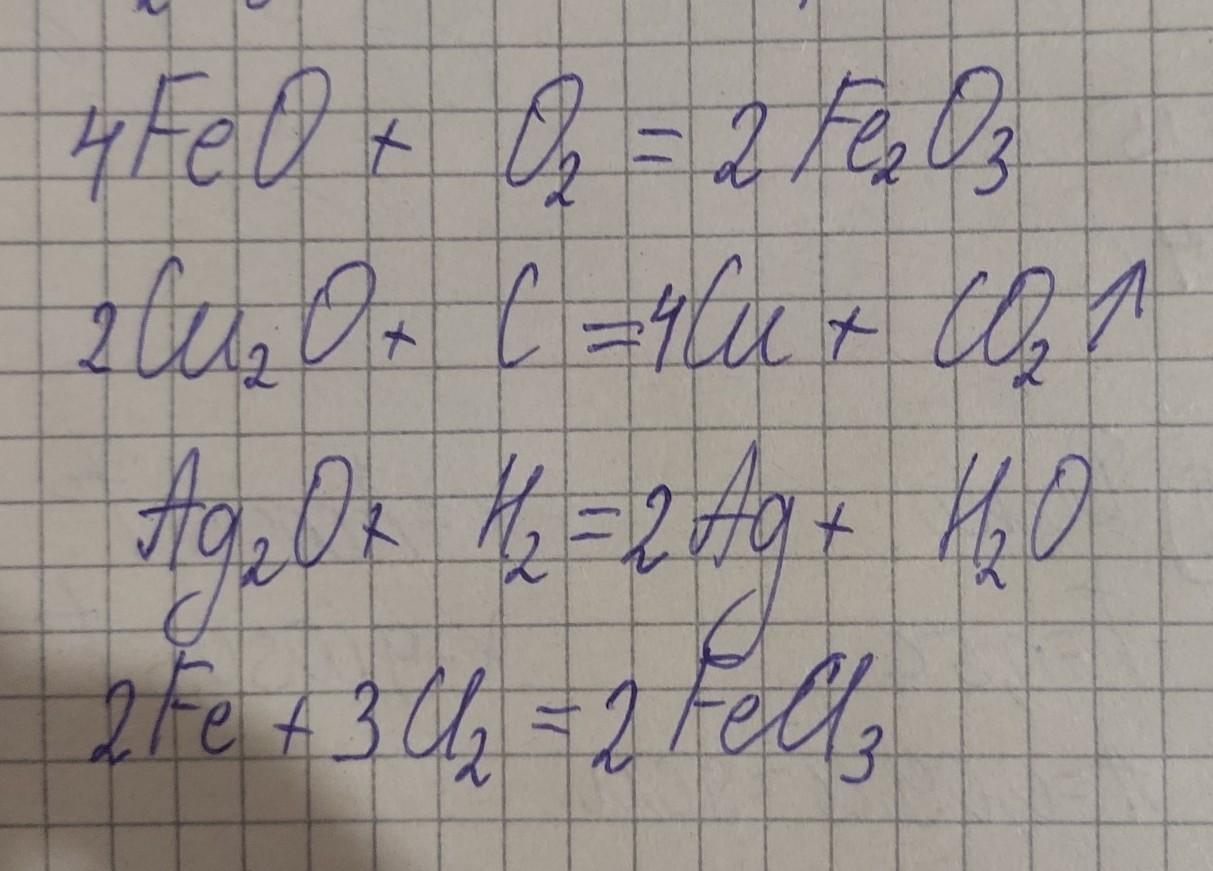 4FeO + O₂ = 2Fe₂O₃
2Cu₂O + C = 4Cu + CO₂↑
Ag₂O + H₂ = 2Ag + H₂O
2Fe + 3Cl₂ = 2FeCl₃